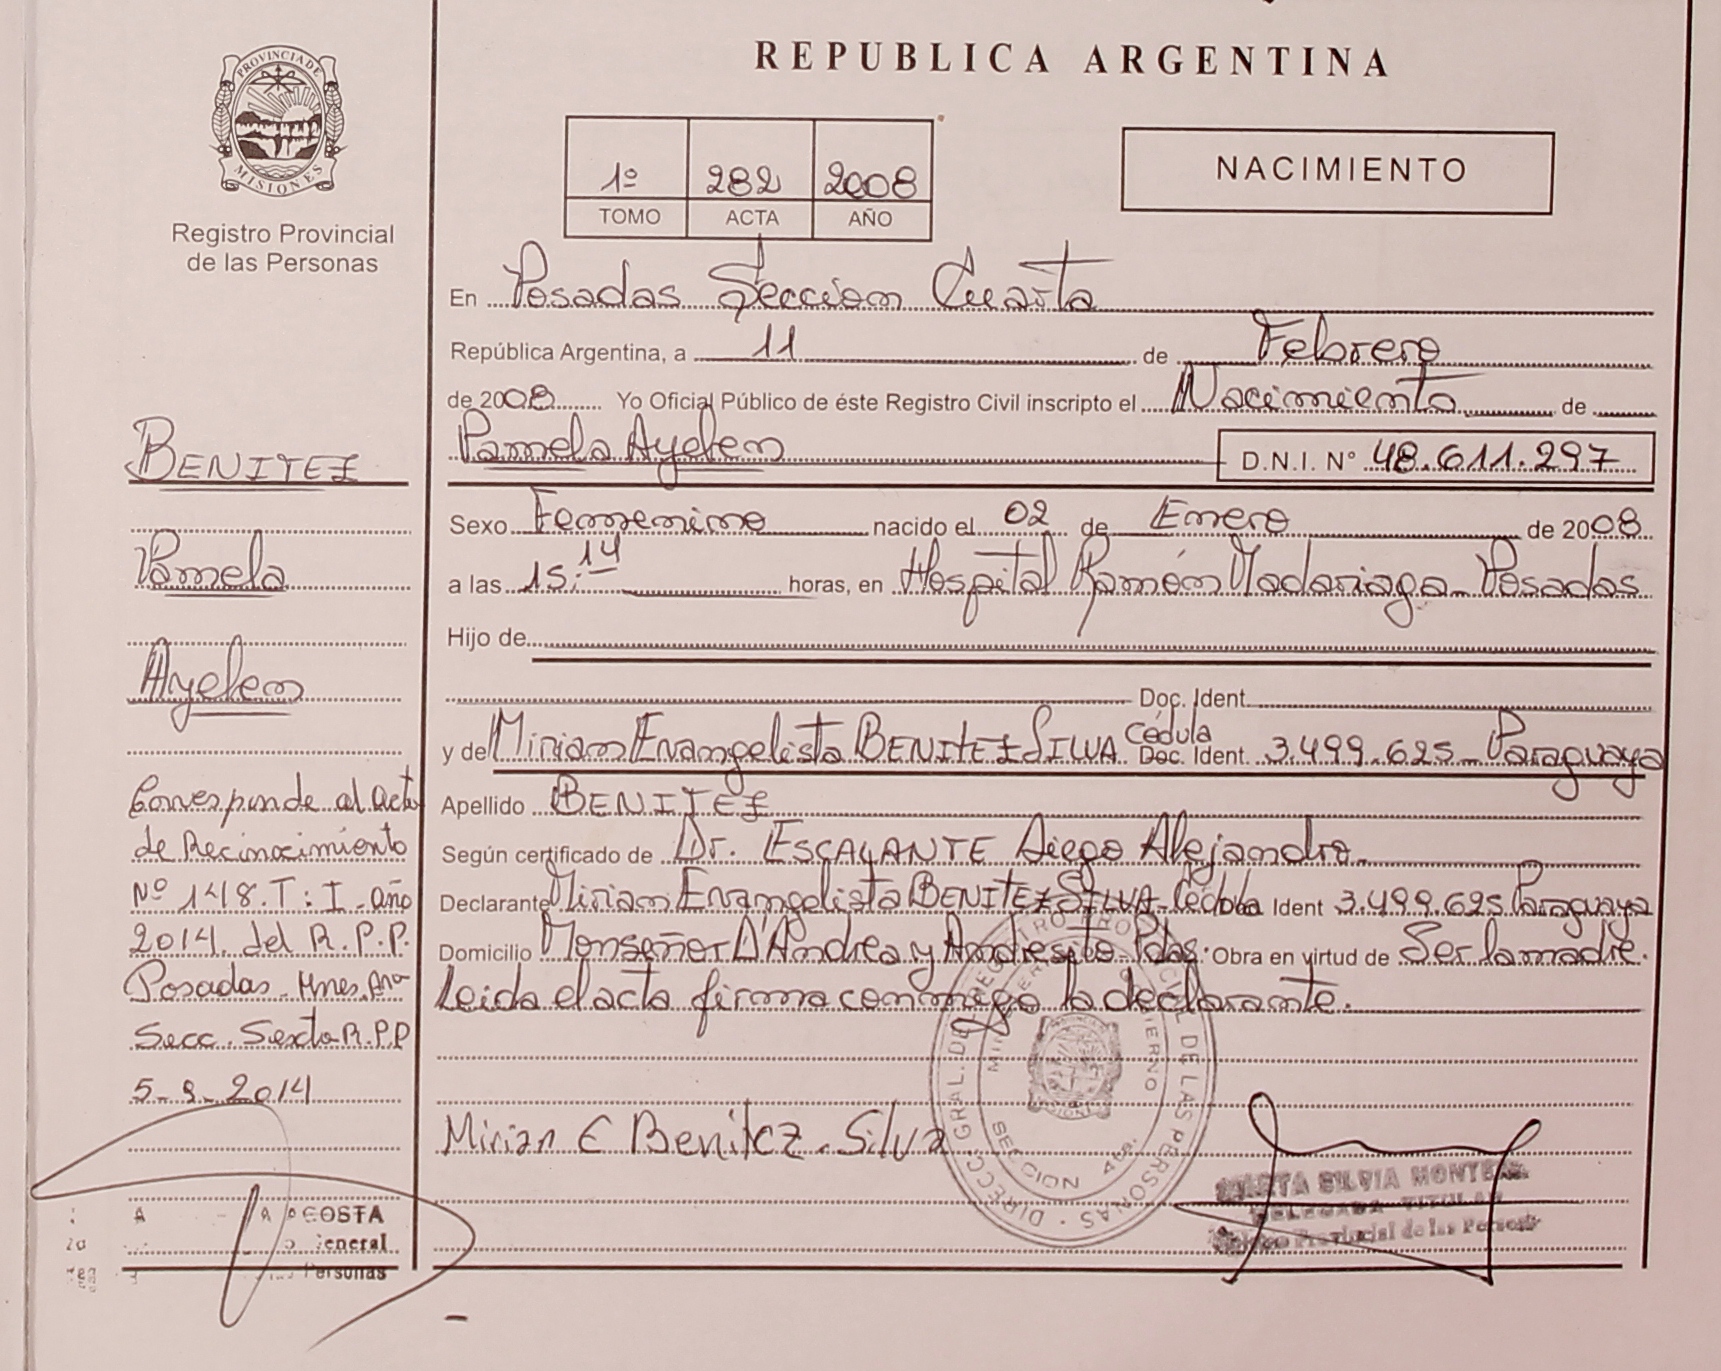 REPUBLICA ARGENTINA
PROVINCIA DE
MISIONES
Registro Provincial
de las Personas
1º 282 2008
TOMO ACTA AÑO
NACIMIENTO
En Posadas Seccion Cuarta
República Argentina, a 11 de Febrero
de 2008 Yo Oficial Público de éste Registro Civil inscripto el Nacimiento de
Pamela Ayelen D.N.I. Nº 48.611.297
Sexo Femenino nacido el 02 de Enero de 2008
a las 15:14 horas, en Hospital Ramón Madariaga - Posadas
Hijo de
Doc. Ident.
y de Miriam Evangelista BENITEZ SILVA Cédula Doc. Ident. 3.499.625 - Paraguaya
Apellido BENITEZ
Según certificado de Dr. ESCALANTE Diego Alejandro.
Declarante Miriam Evangelista BENITEZ SILVA - Cédula Ident 3.499.625 Paraguaya
Domicilio Monseñor D'Andrea y Andresito - Pdas. Obra en virtud de Ser la madre.
Leida el acta firma conmigo la declarante.
Mirian E Benitez - Silva
BENITEZ
Pamela
Ayelen
Corresponde al acta
de Reconocimiento
Nº 148. T: I - año
2014. del R.P.P.
Posadas - Mnes.
Secc. Sexta R.P.P
5-9-2014
COSTA
eneral
Personas
DIRECC. GRAL. DE REGISTRO PROVINCIAL DE LAS PERSONAS
SECCION 4ta.
SILVIA
DELEGADA TITULAR
Provincial de las Personas